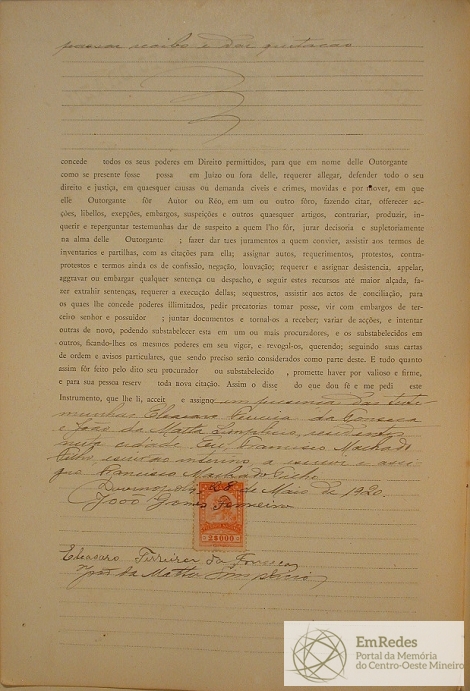 passar recibo e dar quitação
concede todos os seus poderes em Direito permittidos, para que em nome delle Outorgante
como se presente fosse possa em Juizo ou fora delle, requerer allegar, defender todo o seu
direito e justiça, em quaesquer causas ou demanda civeis e crimes, movidas e por mover, em que
elle Outorgante fôr Autor ou Réo, em um ou outro fôro, fazendo citar, offerecer ac-
ções, libellos, exepções, embargos, suspeições e outros quaesquer artigos, contrariar, produzir, in-
querir e reperguntar testemunhas dar de suspeito a quem lho fôr, jurar decisoria e supletoriamente
na alma delle Outorgante ; fazer dar taes juramentos a quem convier, assistir aos termos de
inventarios e partilhas, com as citações para ella; assignar autos, requerimentos, protestos, contra-
protestos e termos ainda os de confissão, negação, louvação; requerer e assignar desistencia, appelar,
aggravar ou embargar qualquer sentença ou despacho, e seguir estes recursos até maior alçada, fa-
zer extrahir sentenças, requerer a execução dellas; sequestros, assistir aos actos de conciliação, para
os quaes lhe concede poderes illimitados, pedir precatorias tomar posse, vir com embargos de ter-
ceiro senhor e possuidor ; juntar documentos e tornal-os a receber; variar de acções, e intentar
outras de novo, podendo substabelecer esta em um ou mais procuradores, e os substabelecidos em
outros, ficando-lhes os mesmos poderes em seu vigor, e revogal-os, querendo; seguindo suas cartas
de ordem e avisos particulares, que sendo preciso serão considerados como parte deste. E tudo quanto
assim fôr feito pelo dito seu procurador ou substabelecido , promette haver por valioso e firme,
e para sua pessoa reserv toda nova citação. Assim o disse do que dou fé e me pedi este
Instrumento, que lhe li, acceit e assigno em presença das teste-
munhas Eleasaro Ferreira da Fonseca
e João da Matta, residentes
nesta cidade. Eu, Francisco Machado
Filho, escrivão interino, a escrevi e assi-
gno. Francisco Machado Filho
28 de Maio de 1920.
João
2$000
Eleasaro Ferreira da Fonseca
João da Matta
EmRedes
Portal da Memória
do Centro-Oeste Mineiro